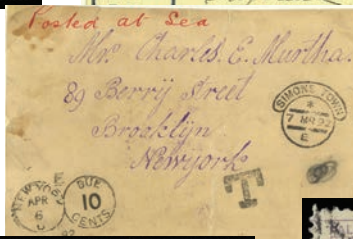 Posted at Sea
Mr. Charles. E. Murtha.
89 Berry Street
Brooklyn
Newyork
SIMONS TOWN
7 MR 92
E
T
NEW YORK
APR
6
DUE
10
CENTS
92